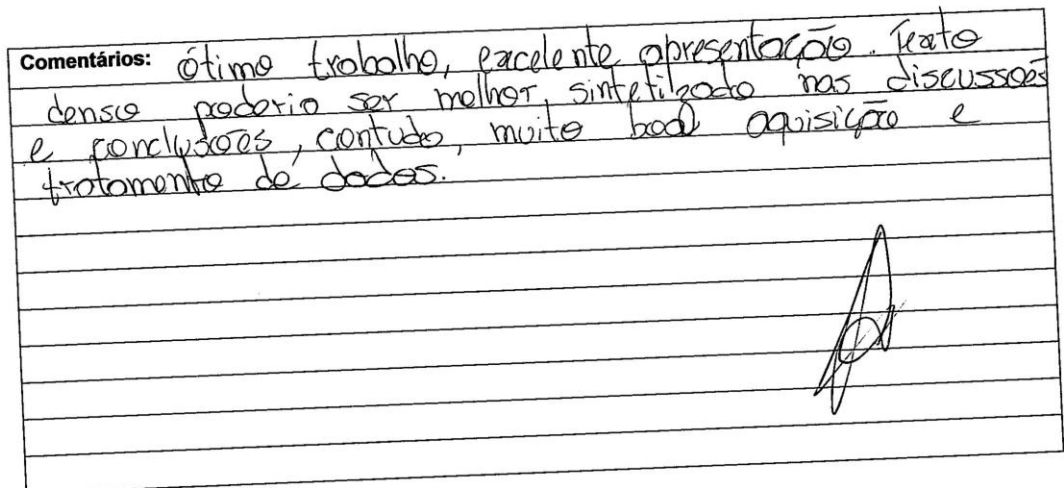 Comentários: Ótimo trabalho, excelente apresentação. Texto
denso poderia ser melhor sintetizado nas discussões
e conclusões, contudo, muito boa aquisição e
tratamento de dados.